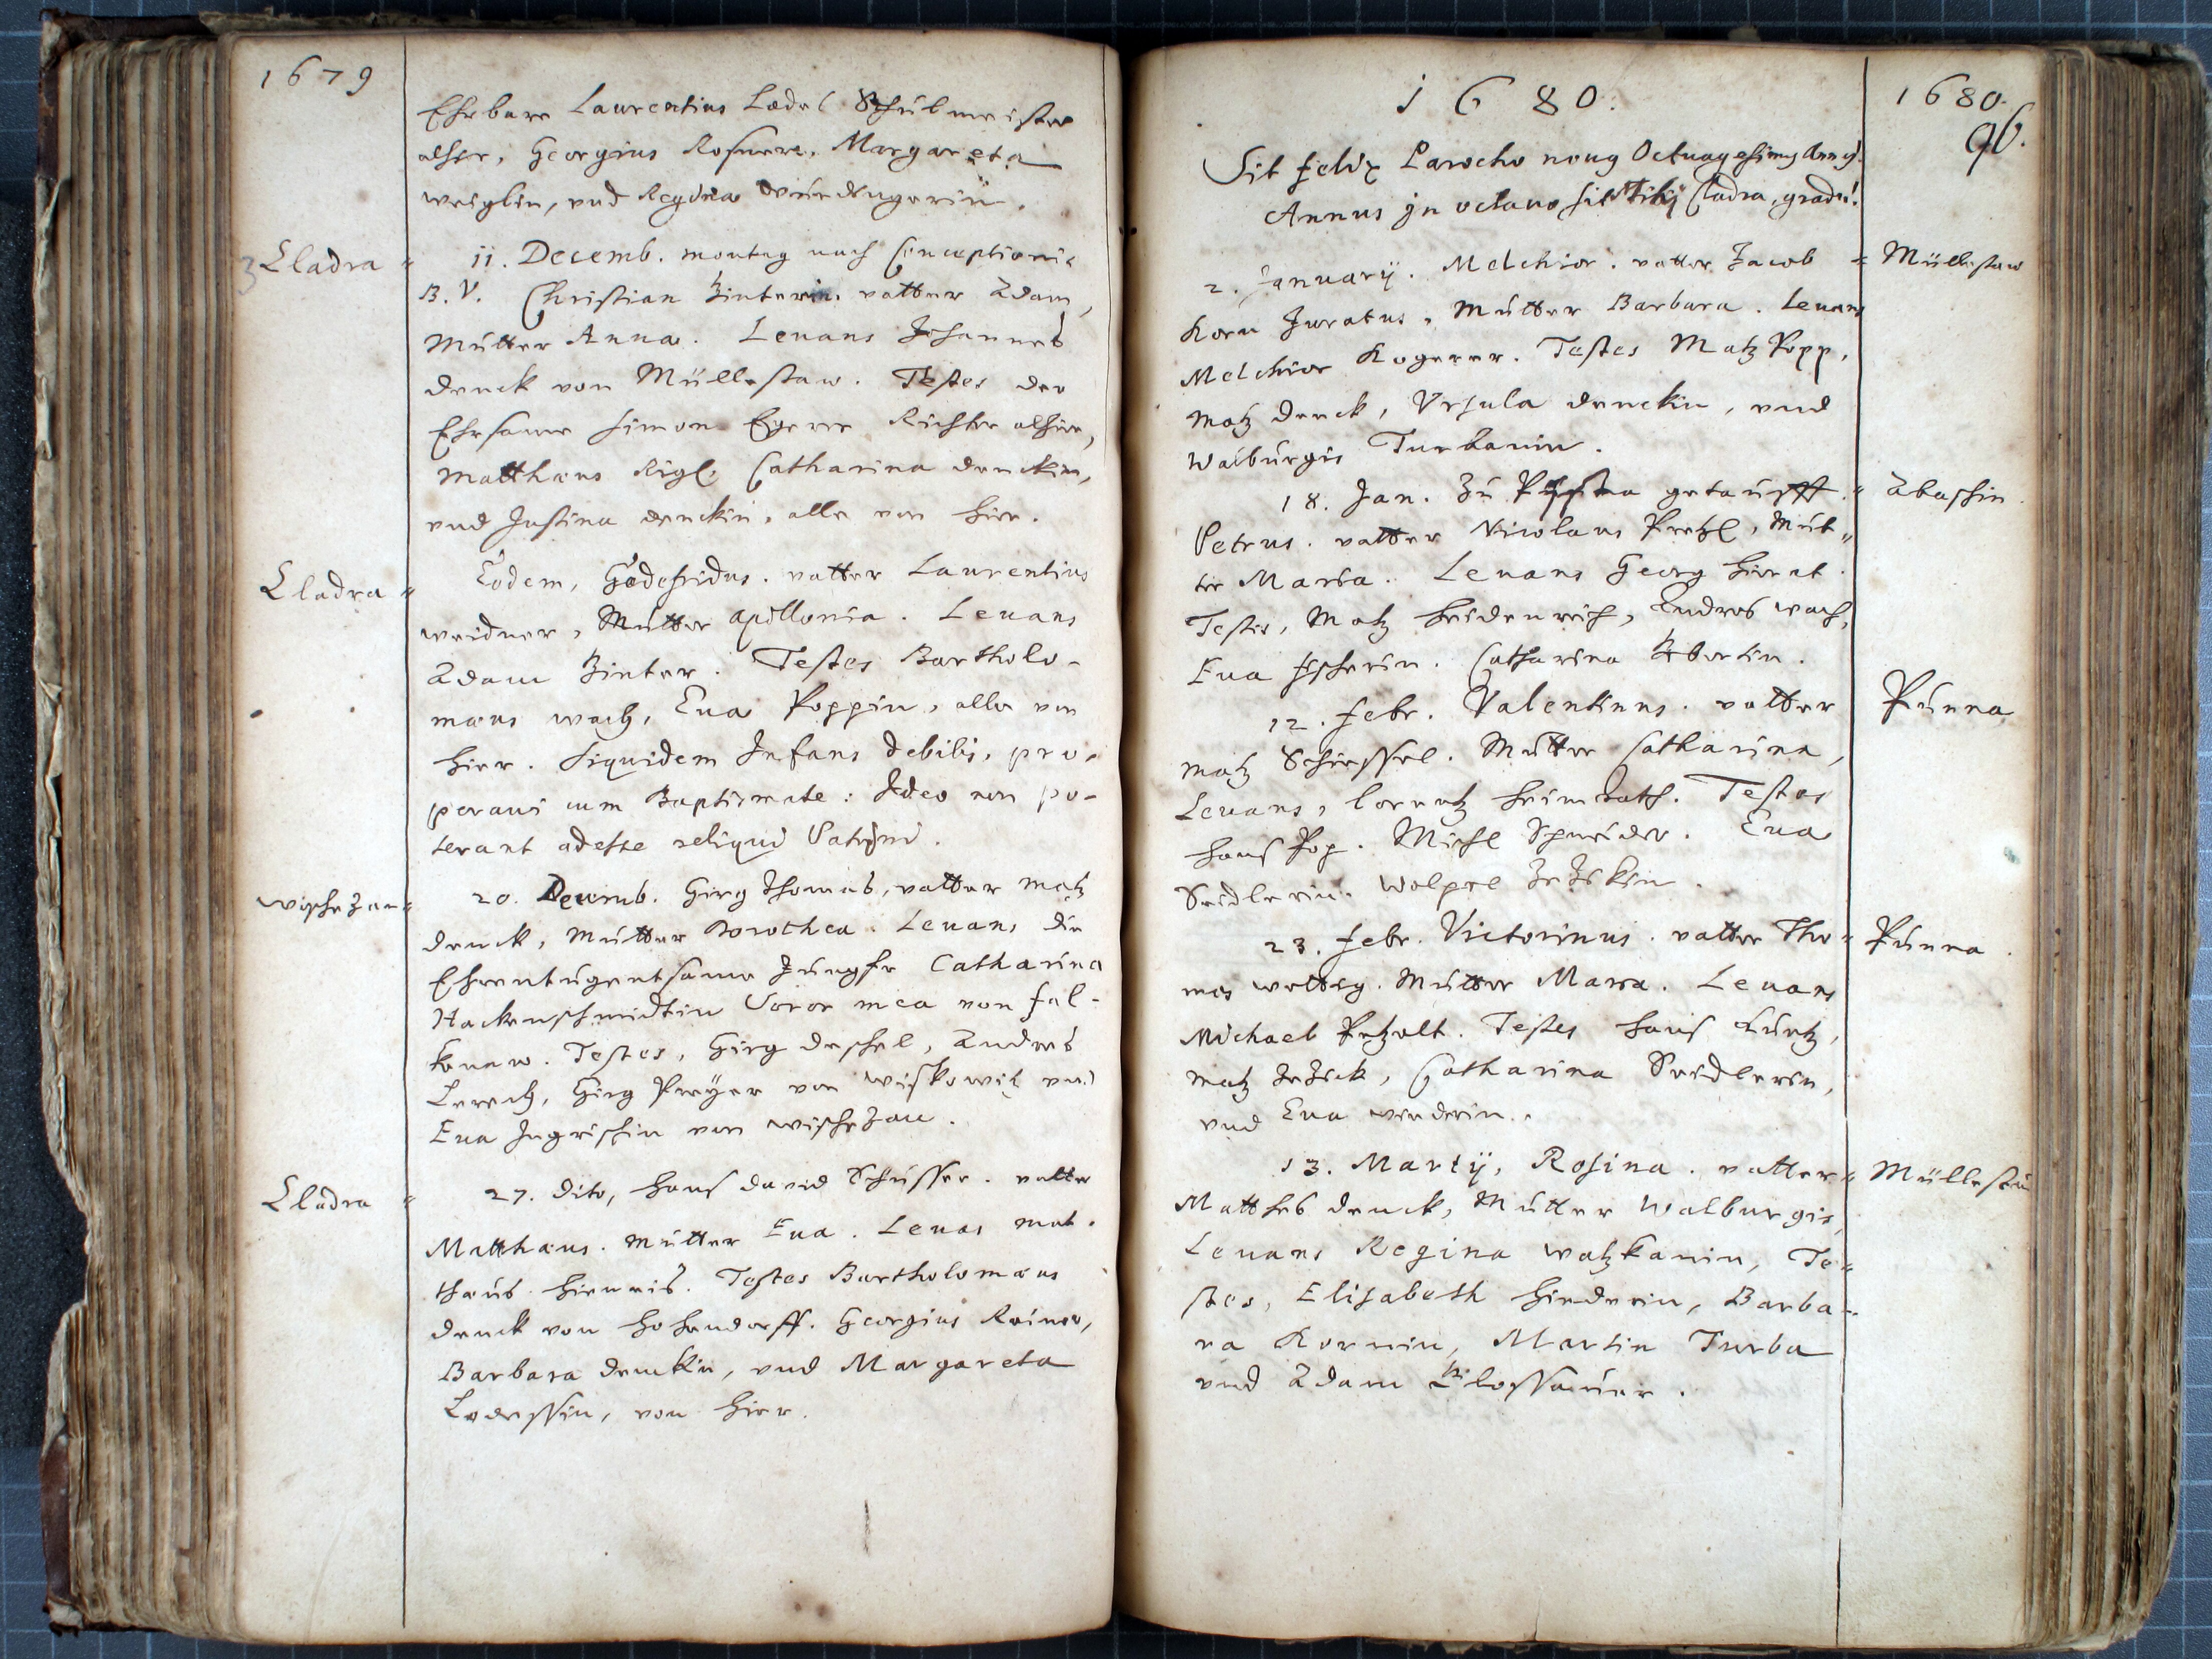 1679
Ehrbare Laurentius Lædel Schúlmeister
alhir, Georgius Rosner, Margareta
weiglin, vnd Regina
3 Cladra " 11. Decemb. montag nach Conceptionis
B. V. Christian Zinter. vatter Adam,
Mútter Anna. Leuans Johannes
denck von Müllestaw. Testes der
Ehrsame Simon Egerer Richter alhier,
Matthæus Rigl. Catharina denckin,
vnd Justina denckin, alle von hier.
Cladra " Eodem, Godefridus. vatter Laurentius
weidner, Mútter Apollonia. Leuans
Adam Zinter. Testes Bartholo-
mæus wach, Eua Poppin, alle von
hier. Siquidem Infans debilis, pro-
peraui cum Baptismate: Ideo non po-
terant adesse reliqui Patrini.
wischezan " 20. Decemb. Girg Thomas, vatter Matz
denck, Mútter Dorothea. Leuans die
Ehrentúgentsame Júngfr Catharina
Hackenschmidtin Soror mea von Fal-
kenaw. Testes, Girg deschel, Andres
Lerch, Girg Preÿer von wiskowitz vnd
Eua Ingrischin von wischezan.
Cladra " 27. dito, Hans dauid Schüsser. vatter
Matthæus. Mútter Eua. Leuas Mat-
thæus. Testes Bartholomæus
denck von Hohendorff. Georgius Rainer,
Barbara denckin, vnd Margareta
von hier.
1680.
1680.
96.
Sit felix Parocho nouus Octuagesimus Annus.
Annus in octauo sit Tibi Cladra, gradu!
2. January. Melchior. vatter Jacob = Müllestaw
Korn Juratus, Mútter Barbara. Leuans
Melchior Kogerer. Testes Matz Popp,
Matz denck, Vrsula denckin, vnd
Walbúrgis Turbanin.
18. Jan. zú getaúfft. " Abaschin.
Petrus. vatter Nicolaus Pretzl, Mút"
ter Maria. Leuans Georg
Testes, Matz Heidenreich, Andres wach,
Eua Fischerin. Catharina
12. Febr. Valentinus. vatter Púnna
Matz Schiessel. Mútter Catharina,
Leuans, Lorentz Heimrath. Testes
Hans Pop. Michl Schneider. Eua
Seidlerin. Walpre
23. Febr. Victorinus. vatter Tho= Púnna.
mas Mútter Maria. Leuans
Michael Petzolt. Testes Hans Kúntz,
Matz Catharina Seidlerin,
vnd Eua
13. Martÿ, Rosina. vatter " Müllestau
Matthes denck, Mútter Walburgis,
Leuans Regina watzkanin, Te=
stes, Elisabeth Barba=
ra Kornin, Martin Turba
vnd Adam